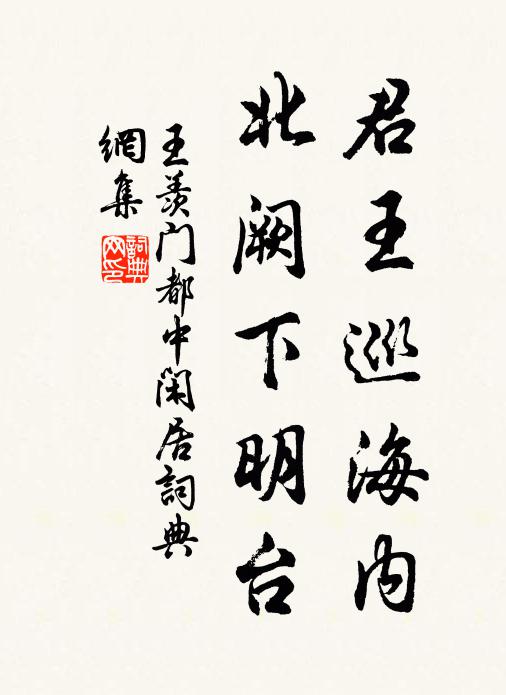 君王巡海内
北阙下明台
王羡门都中闲居詞典
網集
詞典网印